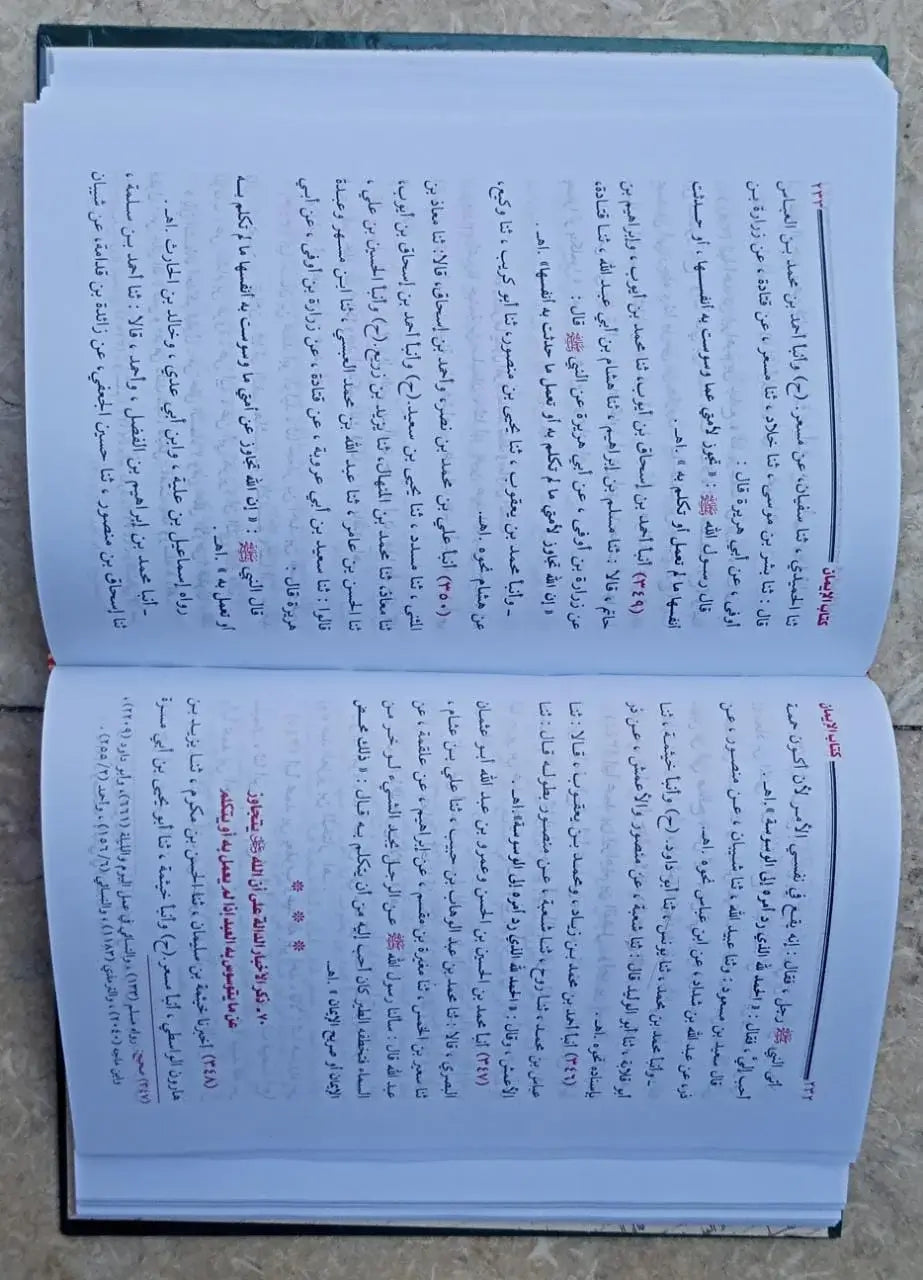 ٢٣٢ كتاب الإيمان
أتى النبي ﷺ رجل ، فقال : إنه يقع في نفسي الأمر لأن أكون حممة
أحب إليَّ ، فقال : « الحمد لله الذي رد أمره إلى الوسوسة » .اهـ.
قال سعيد بن مسعود : وثنا عبيد الله ، ثنا شيبان ، عن منصور ، عن
ذر ، عن عبد الله بن شداد ، عن ابن عباس نحوه .اهـ.
ـ وأنبا محمد بن محمد ، ثنا يونس ، ثنا أبو داود .(ح) وأنبا خيثمة ، ثنا
أبو قلابة ، ثنا أبو الوليد قال : ثنا شعبة ، عن منصور والأعمش ، عن ذر
بإسناده نحوه .اهـ.
(٣٤٦) أنبا أحمد بن محمد بن زياد ، ومحمد بن يعقوب ، قالا : ثنا
عباس بن محمد ، ثنا روح ، ثنا شعبة ، عن منصور بطوله قال : ثنا
الأعمش ، وقال : « الحمد لله الذي رد أمره إلى الوسوسة».اهـ.
(٣٤٧) أنبا محمد بن الحسين بن الحسن وعمرو بن عبد الله أبو عثمان
البصري ، قالا : ثنا محمد بن عبد الوهاب بن حبيب ، ثنا علي بن عثام ،
ثنا سعير بن الخمس ، ثنا مغيرة بن مقسم ، عن إبراهيم ، عن علقمة ، عن
عبد الله قال : سألنا رسول الله ﷺ عن الرجل يجد الشيء لو خر من
السماء فتخطفه الطير كان أحب إليه من أن يتكلم به قال : « ذلك محض
الإيمان أو صريح الإيمان » .اهـ.
* * *
٧٠ـ ذكر الأخبار الدالة على أن الله ﷻ يتجاوز
عن ما يتوسوس به العبد إذا لم يعمل به أو يتكلم
(٣٤٨) أخبرنا خيثمة بن سليمان ، ثنا الحسن بن مكرم ، ثنا يزيد بن
هارون الواسطي ، أنبا مسعر .(ح) وأنبا خيثمة ، ثنا أبو يحيى بن أبي مسرة
(٣٤٧) صحيح : رواه مسلم (١٣٣) ، والنسائي في عمل اليوم والليلة (٦٦٦) ، وأبو داود (٢٢٠٩)،
وابن ماجه (٢٠٤٠) ، والترمذي (١١٨٣) ، والنسائي (١٥٦/٦) ، وأحمد (٢٥٥/٢) .
كتاب الإيمان ٢٣٣
ثنا الحميدي ، ثنا سفيان، عن مسعر : (ح) وأنبا أحمد بن محمد بن العباس
قال : ثنا بشر بن موسى ، ثنا خلاد ، ثنا مسعر ، عن قتادة ، عن زرارة بن
أوفى ، عن أبي هريرة قال :
قال رسول الله ﷺ : « تجوز لأمتي عما وسوست به أنفسها ، أو حدثت
أنفسها ما لم تعمل أو تكلم به » .اهـ.
(٣٤٩) أنبا أحمد بن إسحاق بن أيوب، ثنا محمد بن أيوب ، وإبراهيم بن
حاتم ، قالا : ثنا مسلم بن إبراهيم ، ثنا هشام بن أبي عبد الله ، ثنا قتادة،
عن زرارة بن أوفى ، عن أبي هريرة عن النبي ﷺ قال :
« إن الله تجاوز لأمتي ما لم تكلم به أو تعمل ما حدثت به أنفسها» .اهـ.
ـ وأنبأ محمد بن يعقوب ، ثنا يحيى بن منصور، ثنا أبو كريب ، ثنا وكيع،
عن هشام نحوه .اهـ.
(٣٥٠) أنبا علي بن محمد بن نصر، وأحمد بن إسحاق، قالا: ثنا معاذ بن
المثنى ، ثنا مسدد ، ثنا يحيى بن سعيد.(ح) وأنبا أحمد بن إسحاق بن أيوب،
ثنا معاذ، ثنا محمد بن المنهال، ثنا يزيد بن زريع.(ح) وأنبا الحسين بن علي ،
ثنا الحسن بن عامر ، ثنا عبد الله بن محمد العبسي ، ثنا ابن مسهر وعبدة
قالوا : ثنا سعيد بن أبي عروبة ، عن قتادة ، عن زرارة بن أوفى ، عن أبي
هريرة قال :
قال النبي ﷺ : « إن الله تجاوز عن أمتي ما وسوست به أنفسها ما لم تكلم به
أو تعمل به » .اهـ.
رواه إسماعيل بن علية ، وابن أبي عدي ، وخالد بن الحارث .اهـ.
ـ أنبا محمد بن إبراهيم بن الفضل ، وأحمد ، قالا : ثنا أحمد بن سلمة ،
ثنا إسحاق بن منصور ، ثنا حسين الجعفي ، عن زائدة بن قدامة، عن شيبان